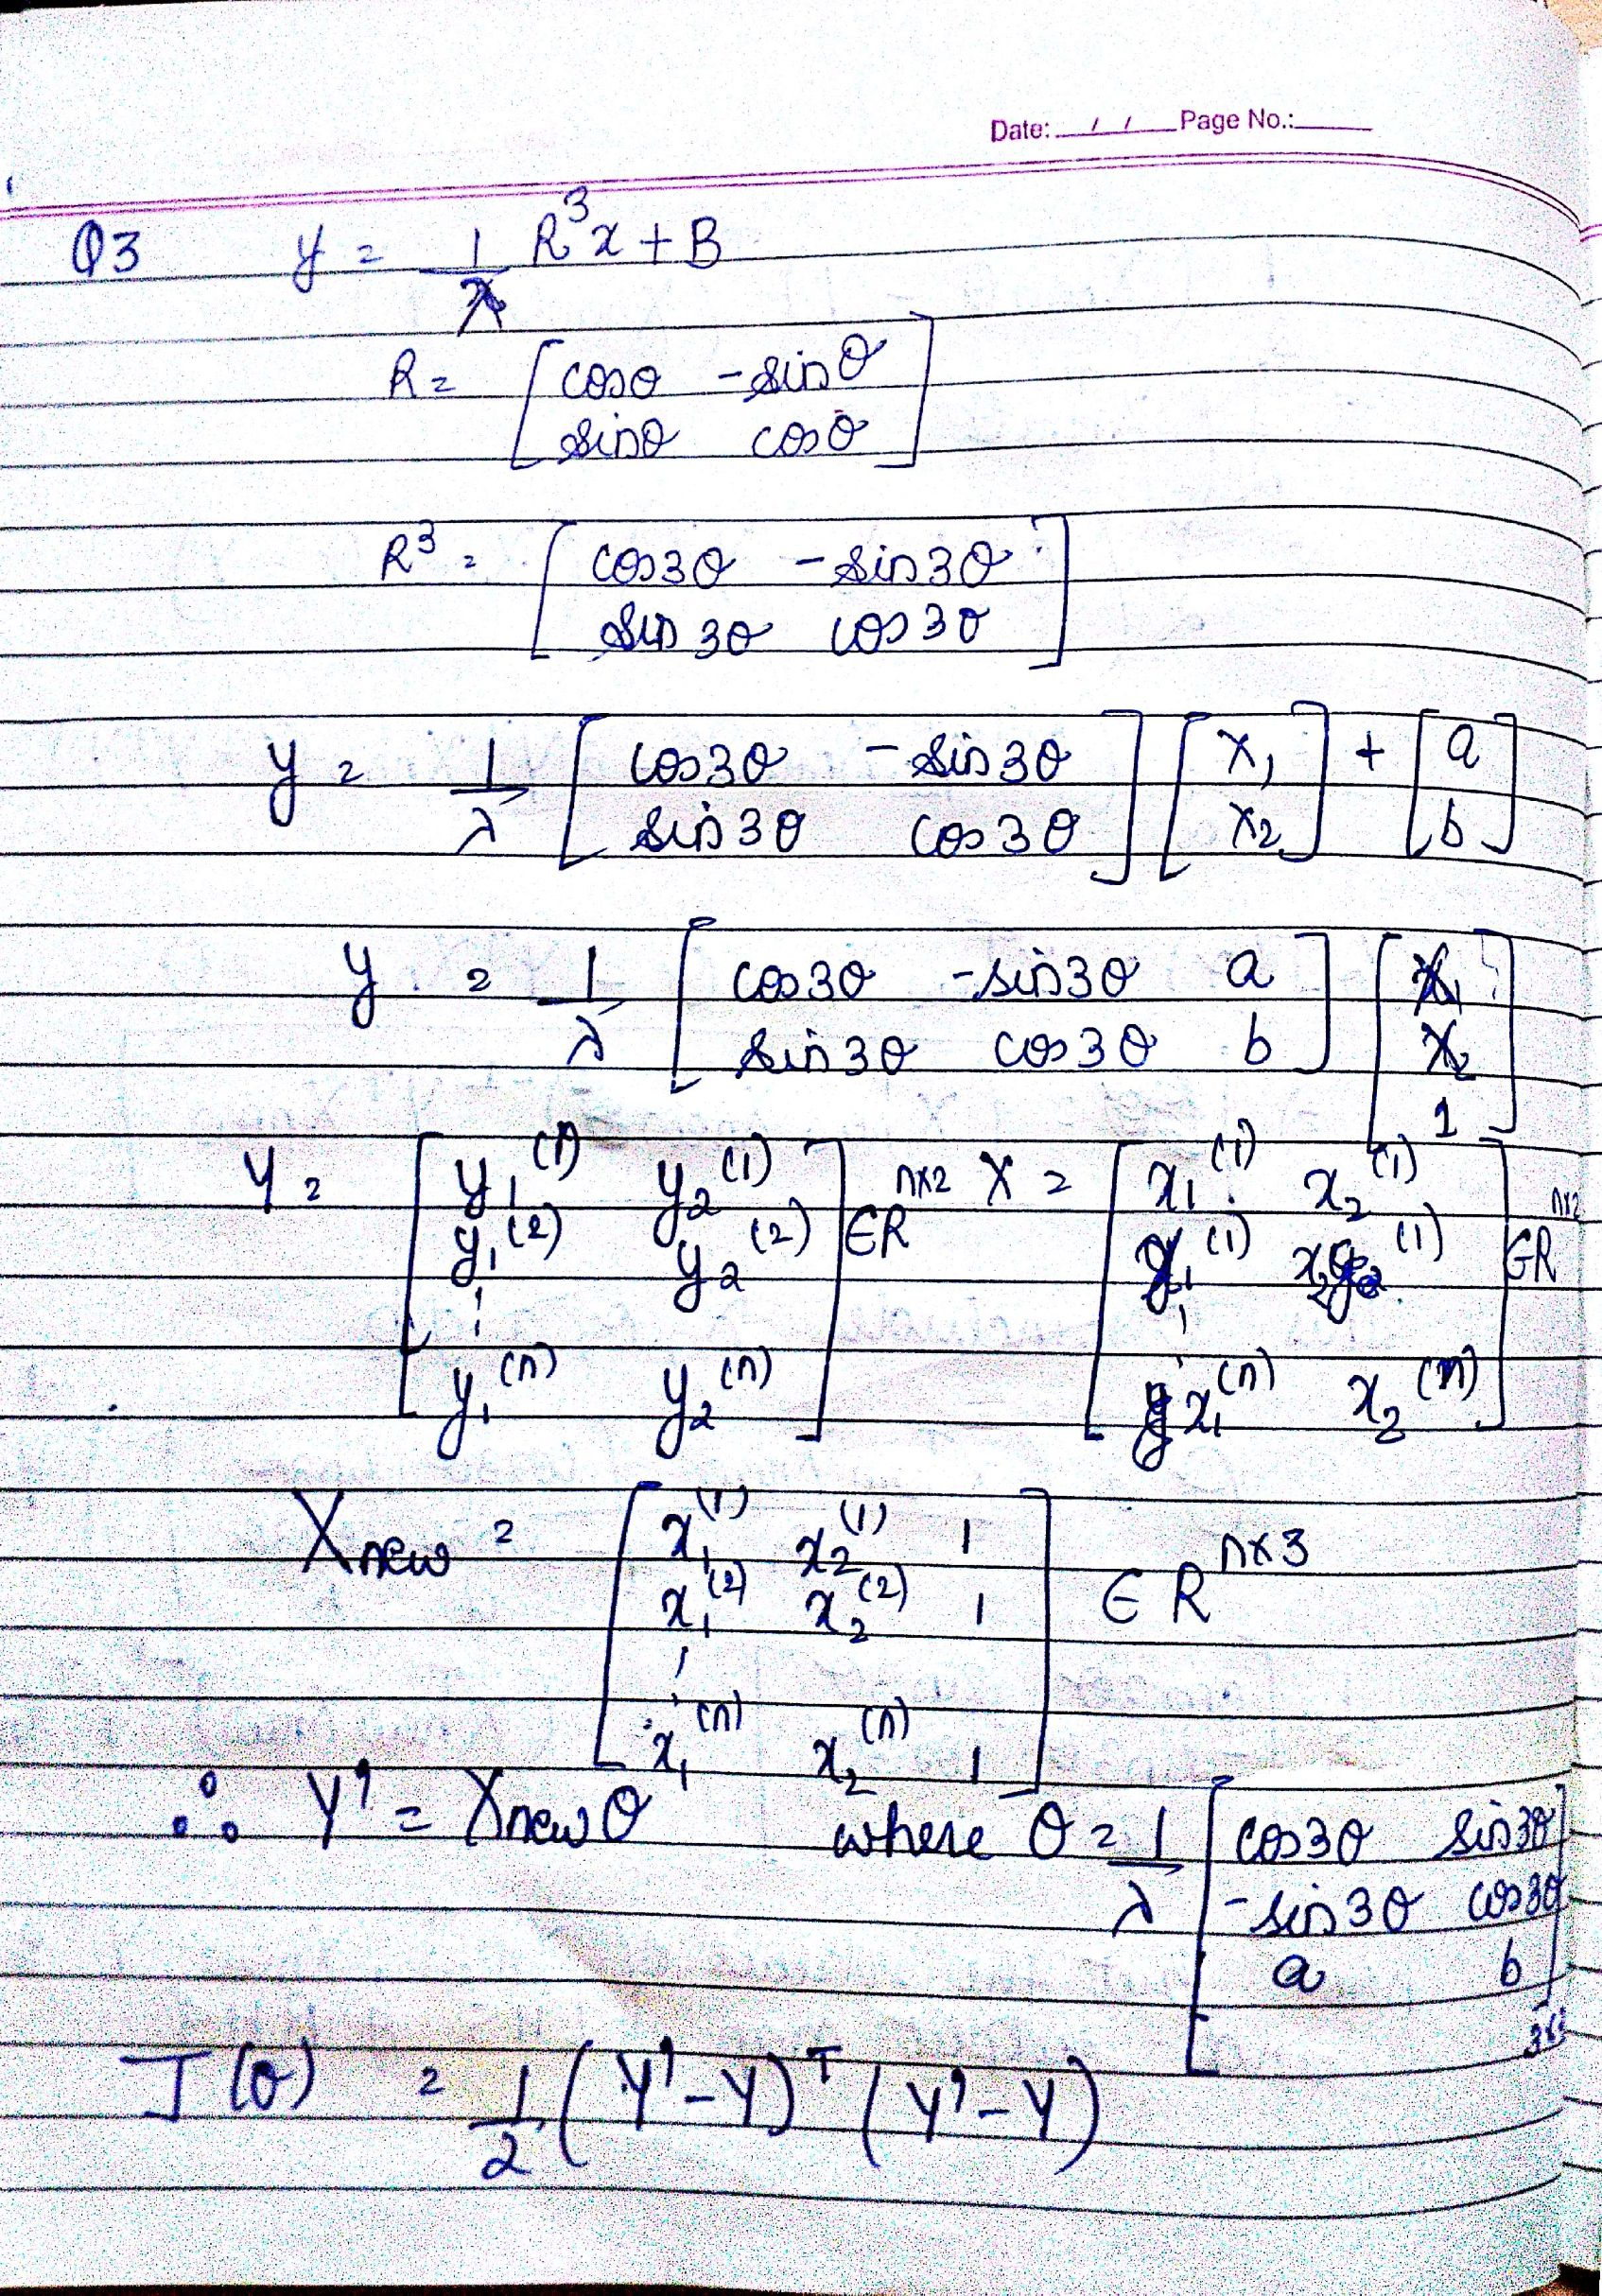 Date: / / Page No.:
Q3 y = 1/λ R³x + B
R = [cosθ -sinθ
sinθ cosθ]
R³ = [cos3θ -sin3θ
sin3θ cos3θ]
y = 1/λ [cos3θ -sin3θ] [x₁] + [a]
[sin3θ cos3θ] [x₂] [b]
y = 1/λ [cos3θ -sin3θ a] [x₁
[sin3θ cos3θ b] x₂
1]
Y = [y₁⁽¹⁾ y₂⁽¹⁾ ∈R^(n×2) X = [x₁⁽¹⁾ x₂⁽¹⁾ ∈R^(n×2)
y₁⁽²⁾ y₂⁽²⁾ x₁⁽¹⁾ x₂⁽¹⁾
⋮ ⋮
y₁⁽ⁿ⁾ y₂⁽ⁿ⁾] x₁⁽ⁿ⁾ x₂⁽ⁿ⁾]
Xnew = [x₁⁽¹⁾ x₂⁽¹⁾ 1
x₁⁽²⁾ x₂⁽²⁾ 1 ∈ R^(n×3)
⋮
x₁⁽ⁿ⁾ x₂⁽ⁿ⁾ 1]
∴ Y' = Xnew θ where θ = 1/λ [cos3θ sin3θ
-sin3θ cos3θ
a b]
J(θ) = 1/2 (Y' - Y)ᵀ (Y' - Y)